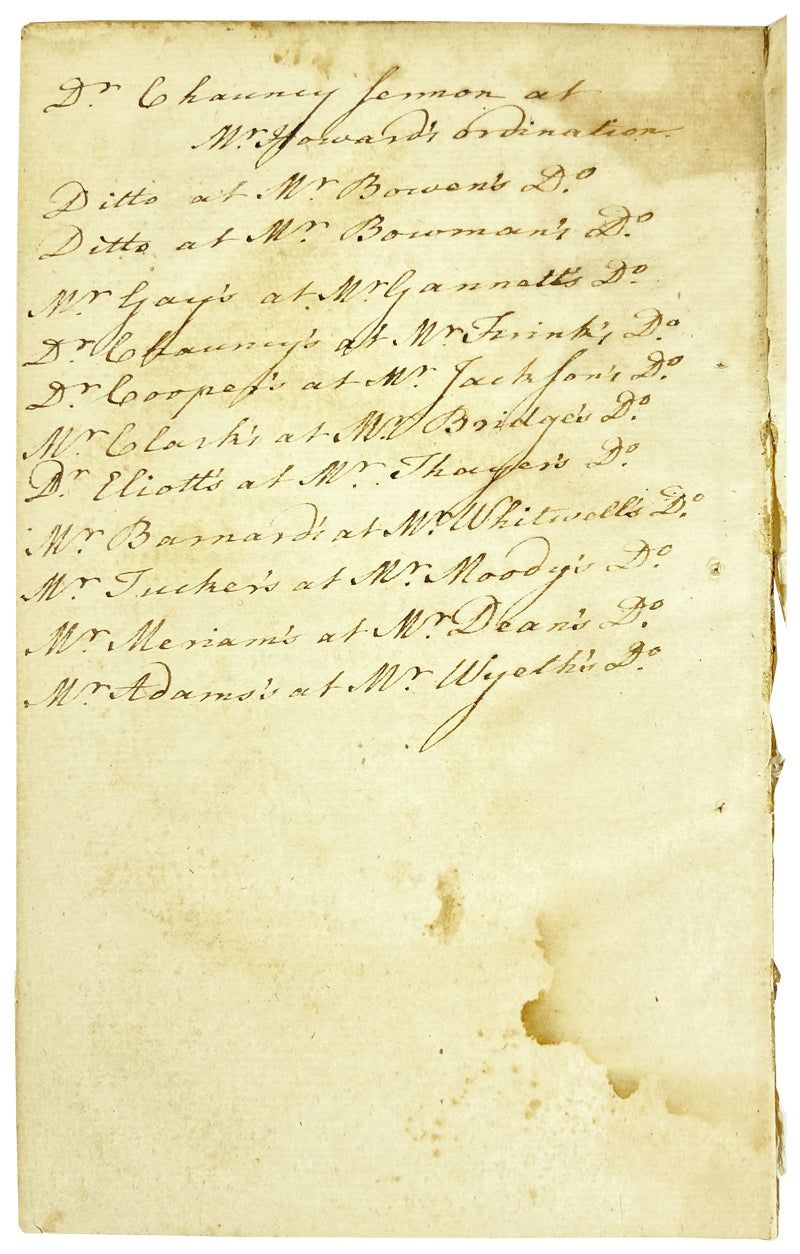 Dr Chauncy sermon at
Mr Howard's ordination
Ditto at Mr Bowen's Do
Ditto at Mr Bowman's Do
Mr Gay's at Mr Gannett's Do
Dr Chauncy's at Mr Frink's Do
Dr Cooper's at Mr Jackson's Do
Mr Clark's at Mr Bridge's Do
Dr Eliott's at Mr Thayer's Do
Mr Barnard's at Mr Whitwell's Do
Mr Tucker's at Mr Moody's Do
Mr Meriam's at Mr Dean's Do
Mr Adams's at Mr Wyeth's Do